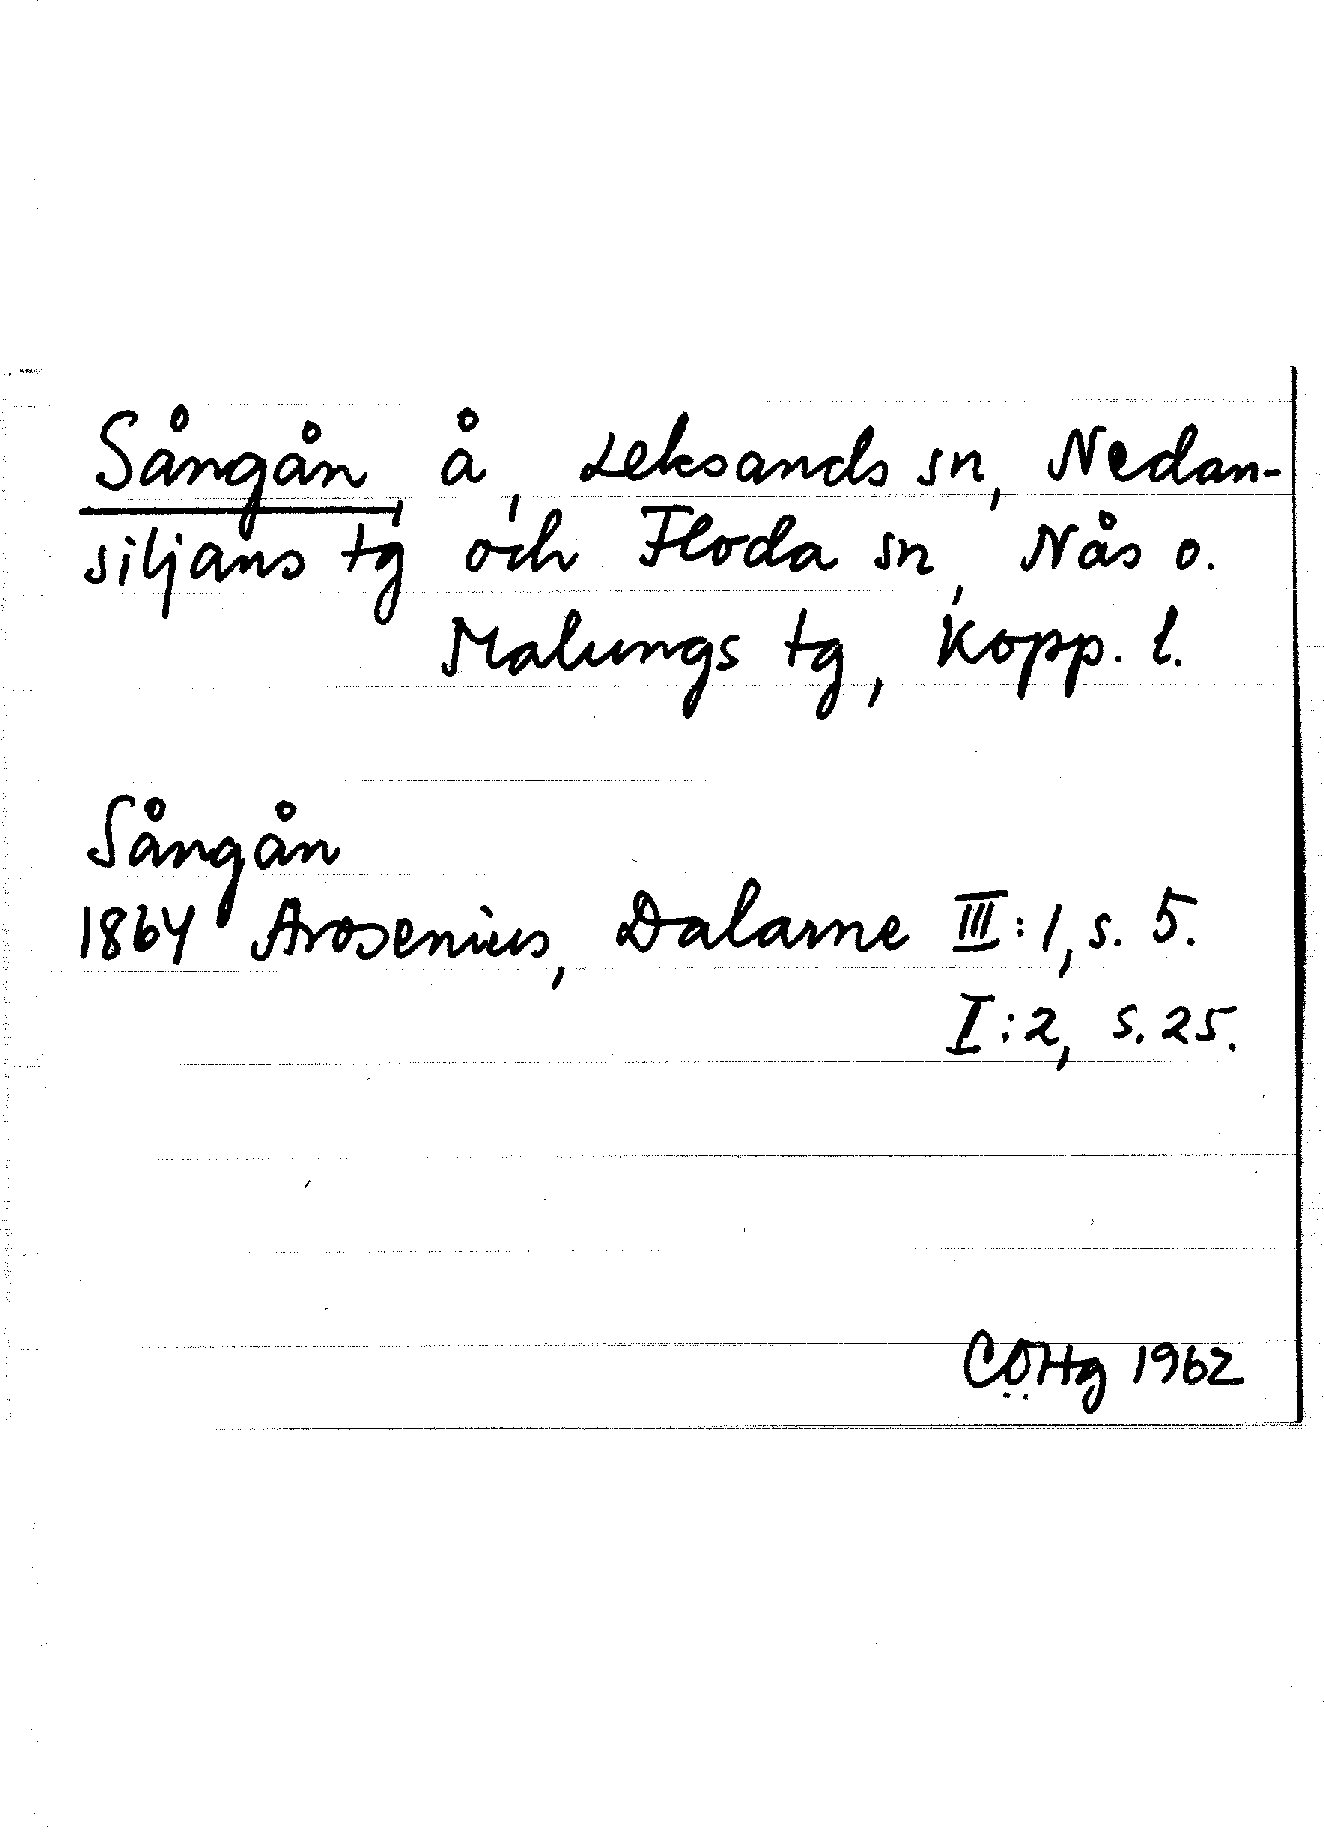 Sångån, å, Leksands sn, Nedan-
siljans tg och Floda sn, Nås o.
Malungs tg, Kopp. l.
Sångån
1864 Arosenius, Dalarne III:1, s. 5.
I:2, s. 25.
CÖHg 1962